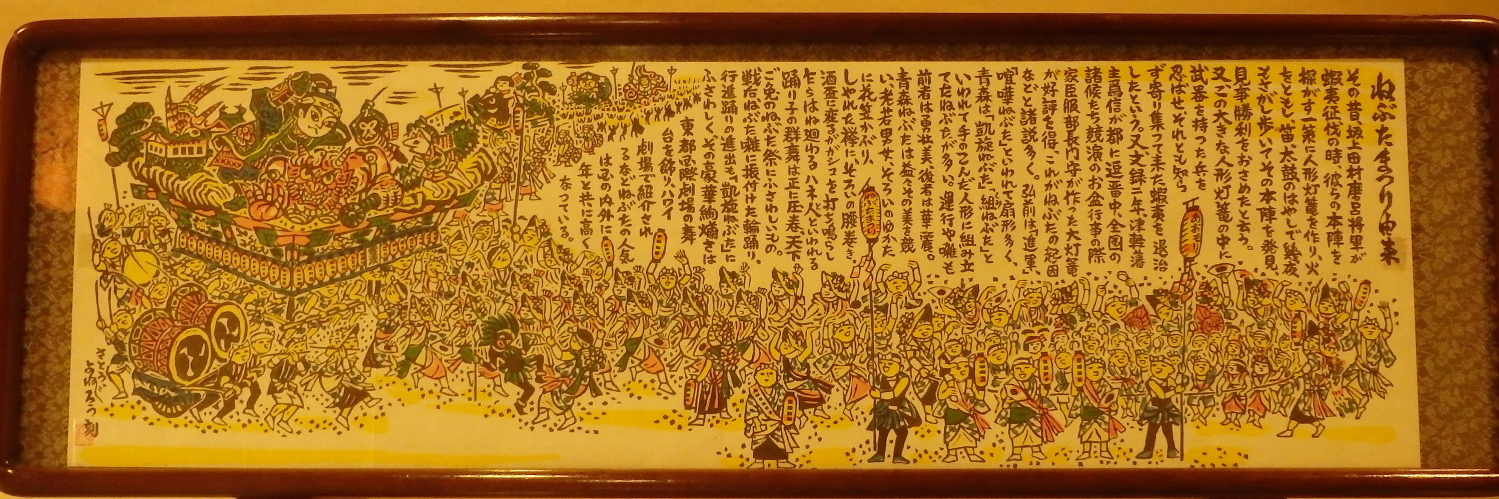 ねぶたまつり由来
その昔、坂上田村麿呂将軍が
蝦夷征伐の時、彼らの本陣を
探がす一策に人形灯篭を作り火
をともし笛太鼓のはやしで幾夜
もさがし歩いてその本陣を発見、
見事勝利をおさめたと云う。
又この大きな人形灯篭の中に
武器を持った兵を
忍ばせ、それとも知ら
ず寄り集って来た蝦夷を退治
したという。又文録二年、津軽藩
主為信が都に逗留中、全国の
諸候たち競演のお盆行事の際
家臣服部長門守が作った大灯篭
が好評を得、これがねぶたの起因
などと諸説多く、弘前は「進軍」
「喧嘩ねぶた」といわれて扇形多く、
青森は「凱旋ねぶた」「組ねぶた」と
いわれて手のこんだ人形に組み立
てたねぶたが多い。運行や囃も
前者は勇壮美、後者は華麗。
青森ねぶたは益々の美を競
い、老若男女、そろいのゆかた
に花笠かぶり、
しゃれた襷にそろいの腰巻き、
酒盃に変るガガシュを打ち鳴らし
とらはね廻わるハネト人といわれる
踊り子の群舞は正に青春、天下
ご免のねぶた祭にふさわしいもの。
戦后ねぶた囃に振付けた輪踊り、
行進踊りの進出も「凱旋ねぶた」に
ふさわしく、その豪華絢爛さは
東都国際劇場の舞
台を飾りハワイ
劇場で紹介され
るなどねぶたの人気
は国の内外に
年と共に高く
なっている。
ねぶたまつり